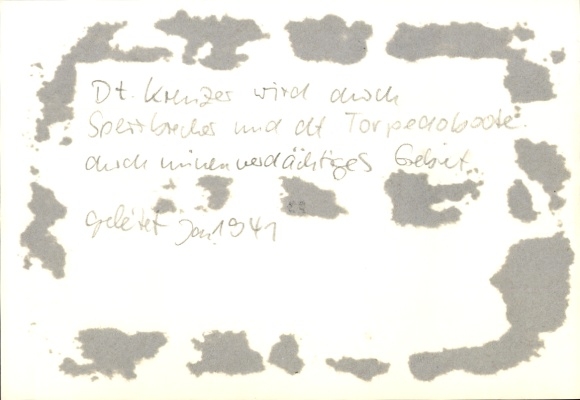 Dt. Kreuzer wird durch
Sperrbrecher und dt Torpedoboote
durch minenverdächtiges Gebiet
geleitet Jan 1941